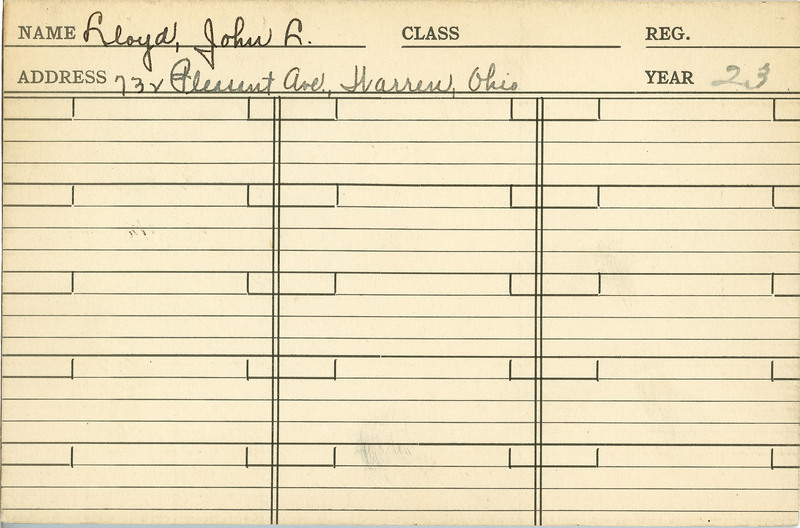 NAME Lloyd, John L. CLASS REG.
ADDRESS 732 Pleasent Ave., Warren, Ohio YEAR 23